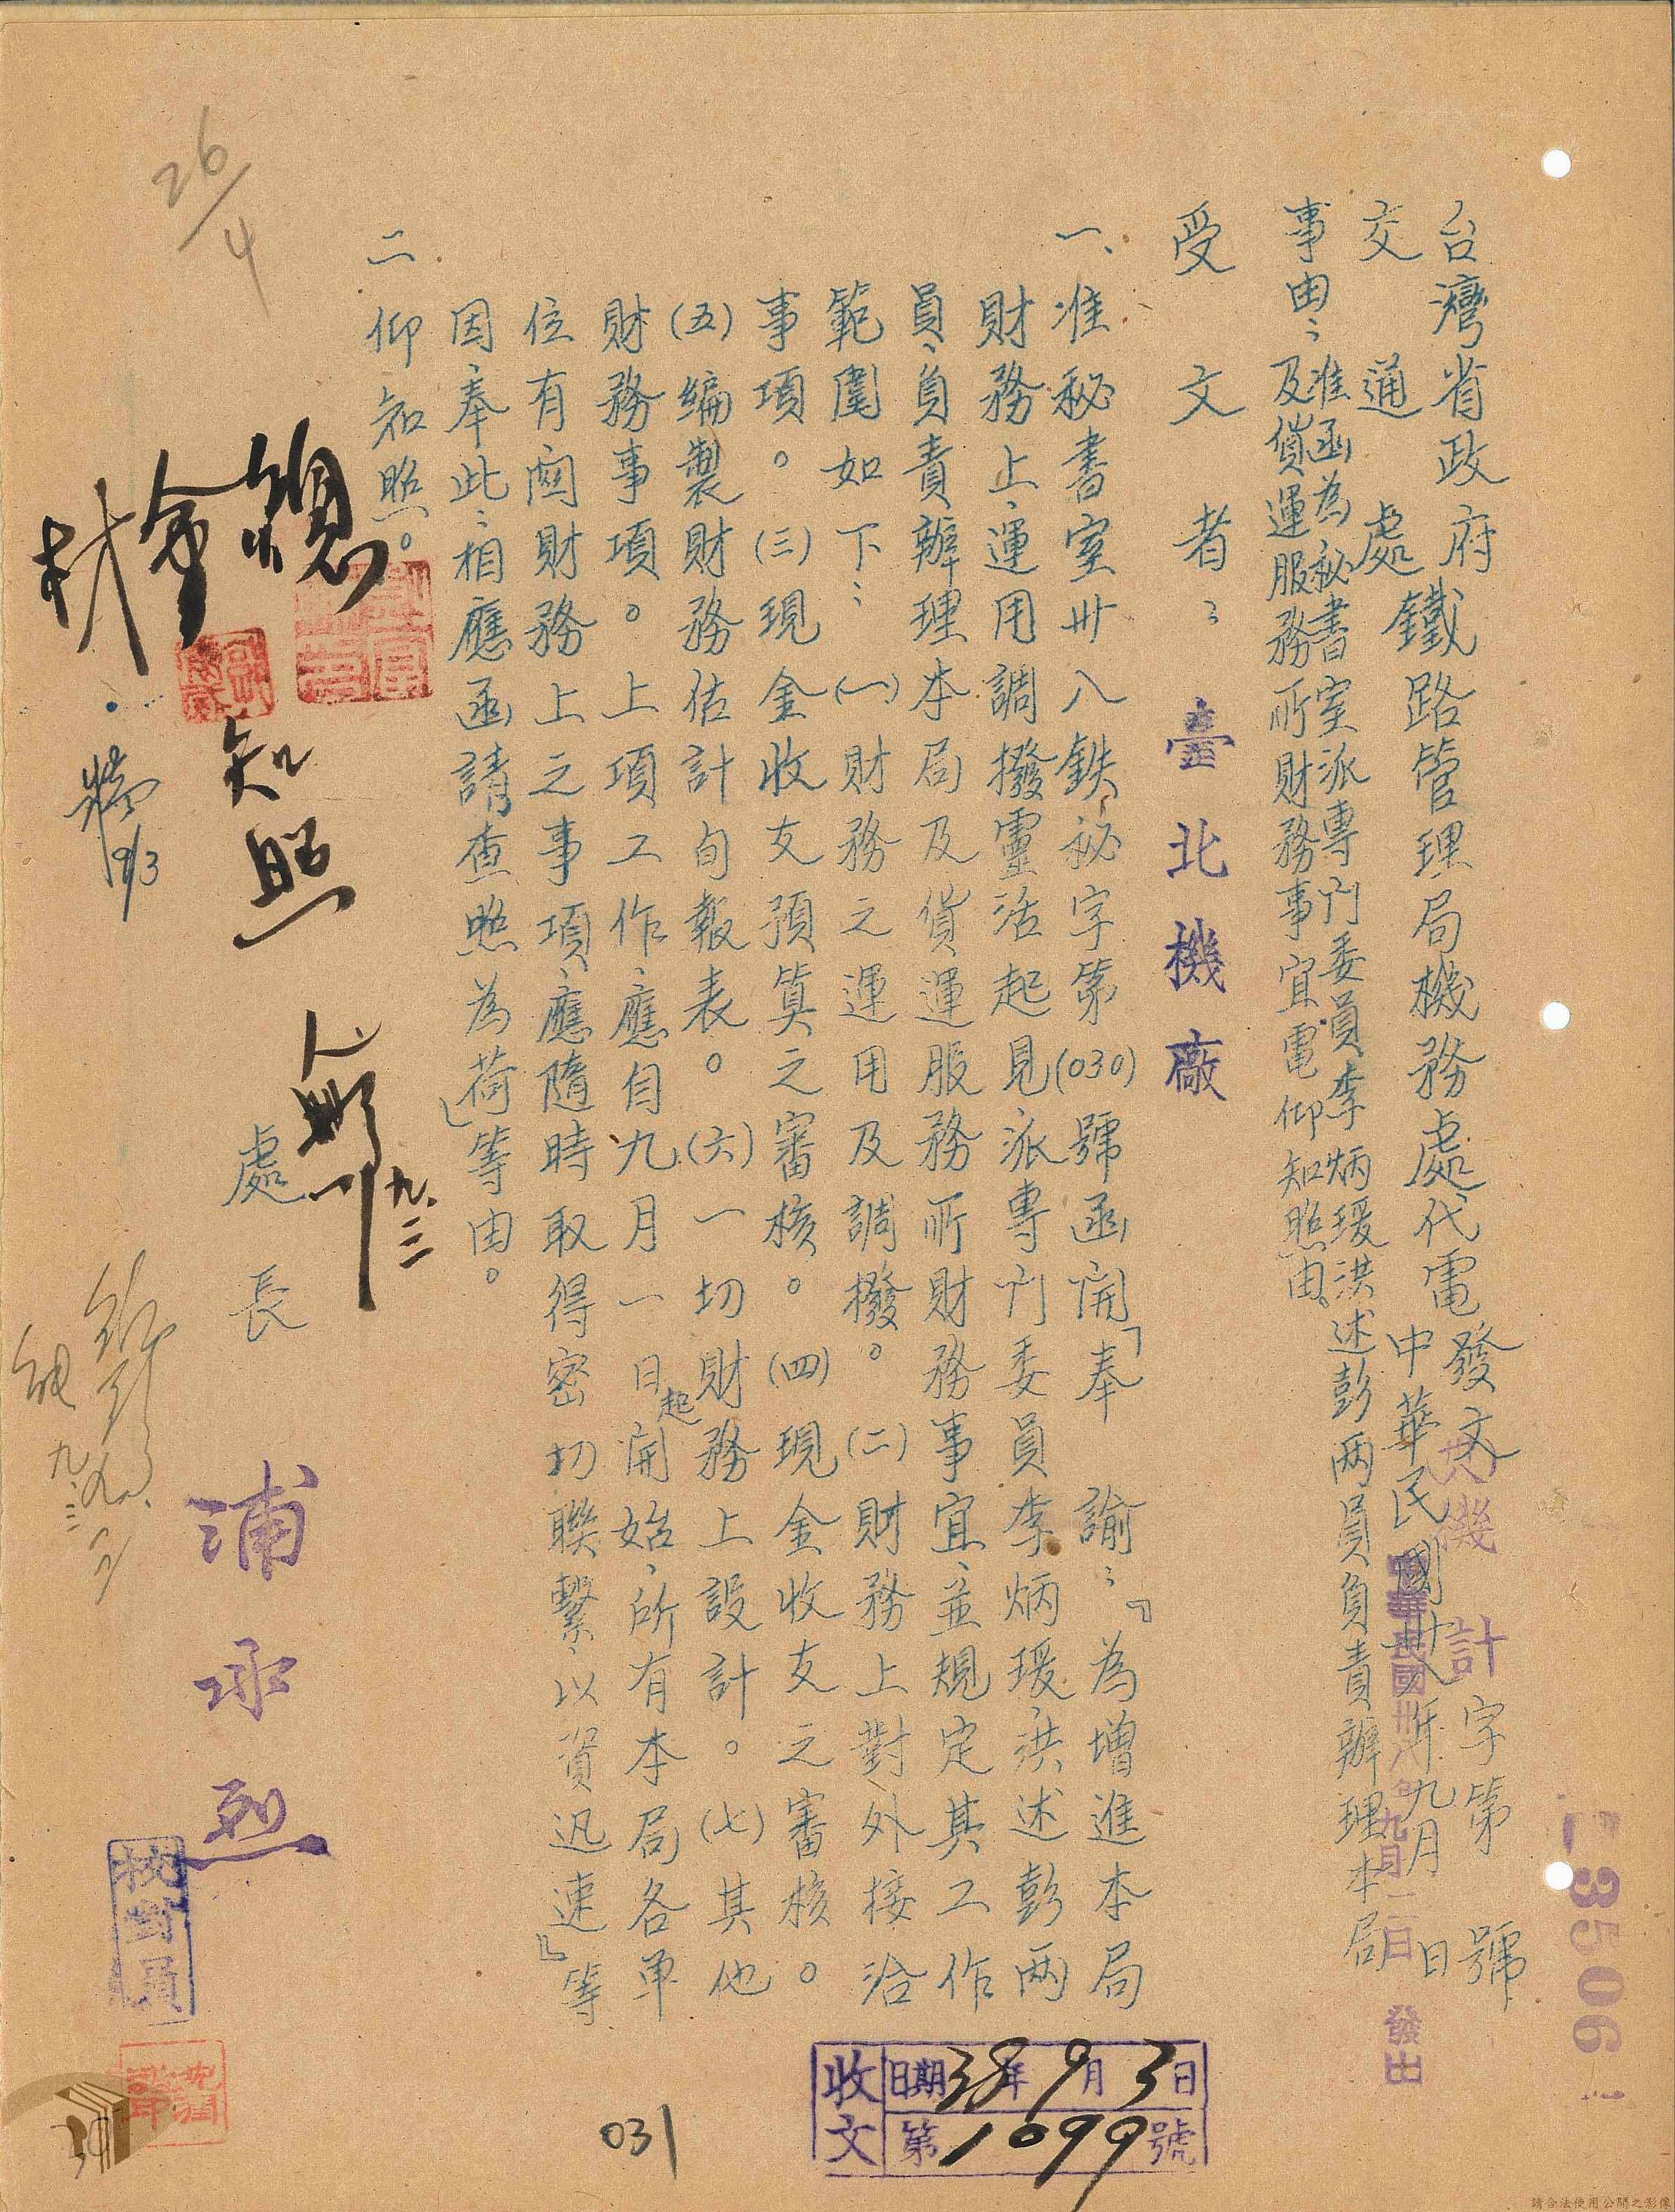 台灣省政府鐵路管理局機務處代電發文卅八機計字第3506號
交通處
中華民國卅八年九月 日
中華民國卅八年九月二日 發出
事由:准函為秘書室派專門委員李炳瑗洪述彭兩員負責辦理本局
及貨運服務所財務事宜電仰知照由。
受文者: 臺北機廠
一、准秘書室卅八鉄秘字第(030)號函開「奉 諭:『為增進本局
財務上運用調撥靈活起見派專門委員李炳瑗洪述彭兩
員負責辦理本局及貨運服務所財務事宜並規定其工作
範圍如下:(一)財務之運用及調撥。(二)財務上對外接洽
事項。(三)現金收支預算之審核。(四)現金收支之審核。
(五)編製財務估計旬報表。(六)一切財務上設計。(七)其他
財務事項。上項工作應自九月一日起開始所有本局各單
位有関財務上之事項應隨時取得密切聯繫以資迅速』等
因奉此相應函請查照為荷」等由。
二仰知照。
總
會
材
知照
九.三
9/3
處長 浦承烈
九.三
校對員
收文 日期38年9月3日
第1099號
031
26/4
請合法使用公開之影像